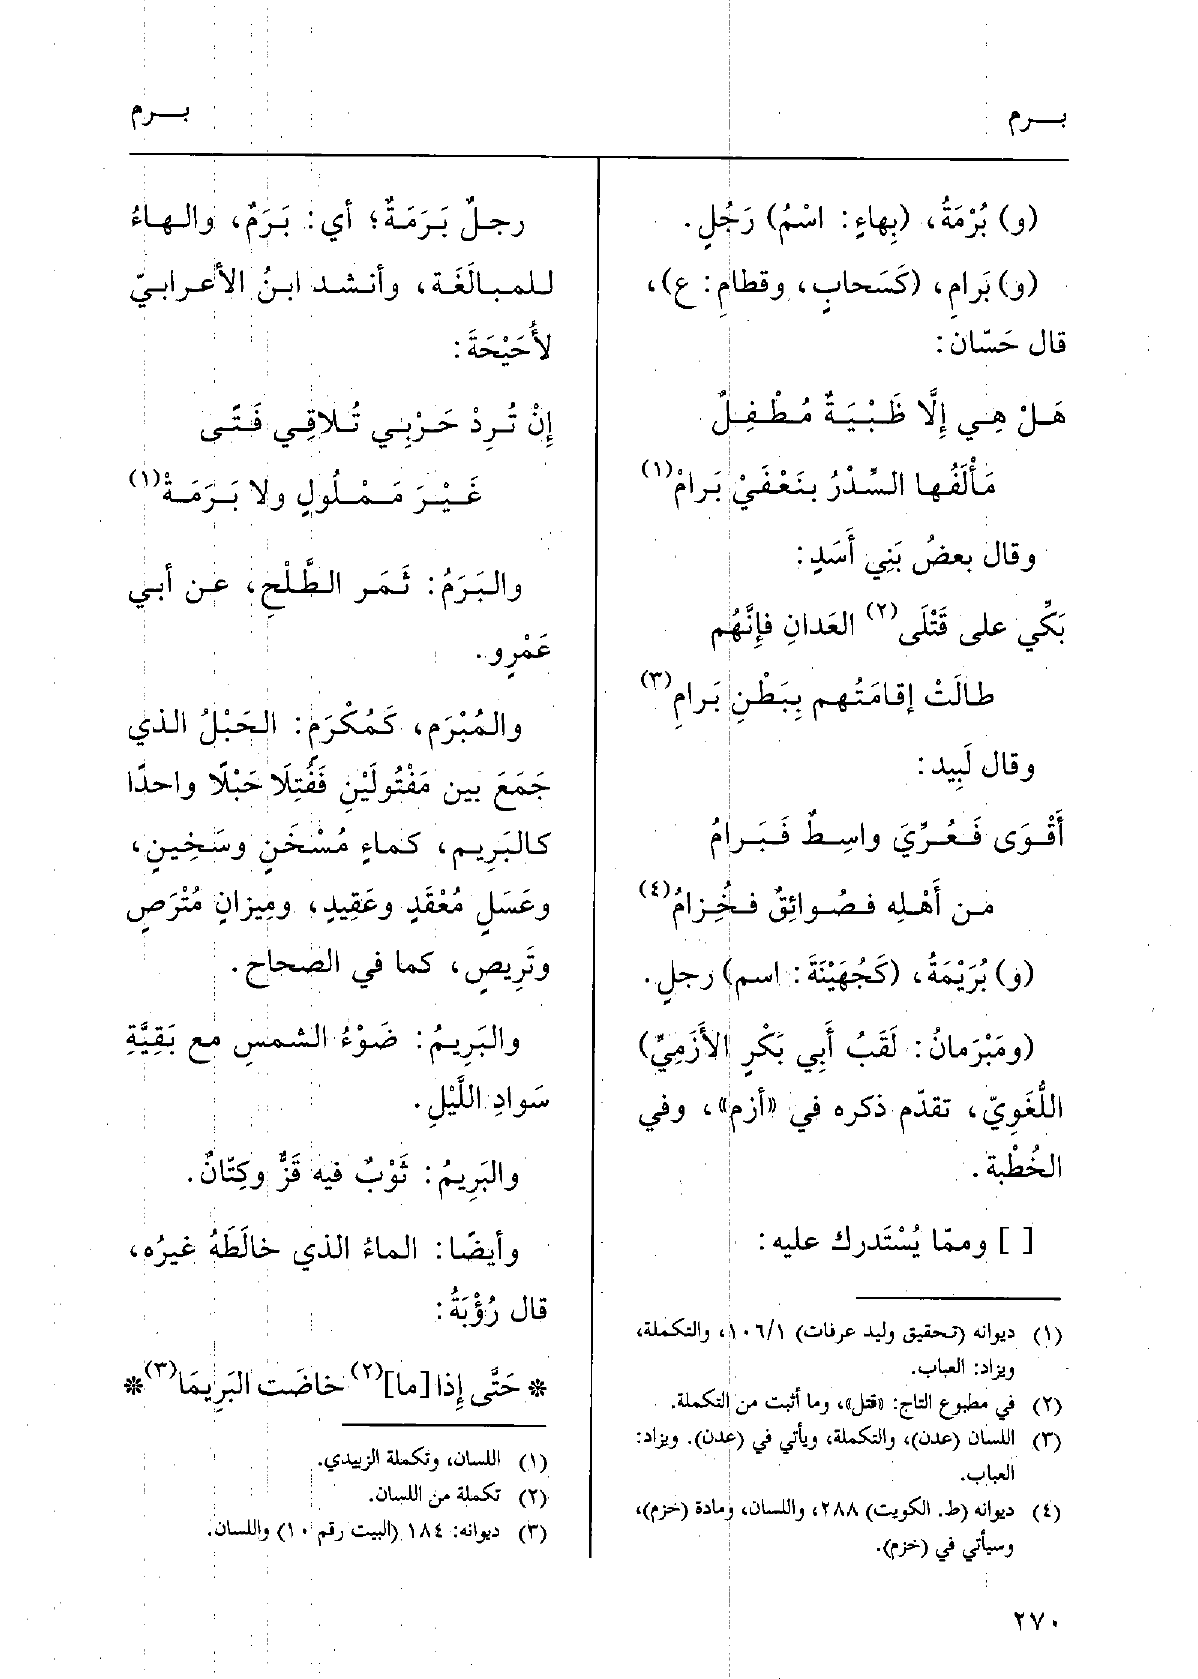 بـرم
بـرم
(و) بُرْمَةُ، (بِهاءٍ: اسْمُ) رَجُلٍ.
(و) بَرام، (كَسَحابٍ، وقطامِ: ع)،
قال حَسّان:
هَلْ هِي إِلَّا ظَبْيَةٌ مُطْفِلٌ
مَأْلَفُها السِّدْرُ بنَعْفَيْ بَرامْ(١)
وقال بعضُ بَنِي أَسَدٍ:
بَكِّي على قَتْلَى(٢) العَدانِ فإنَّهُم
طالَتْ إقامَتُهم بِبَطْنِ بَرامِ(٣)
وقال لَبِيد:
أَقْوَى فَعُرِّيَ واسِطٌ فَبَرامُ
من أَهْلِه فصُوائِقٌ فخُزامُ(٤)
(و) بُرَيْمَةُ، (كَجُهَيْنَةَ: اسم) رجلٍ.
(ومَبْرَمانُ: لَقَبُ أَبِي بَكْرٍ الأَزَمِيِّ)
اللُّغَوِيّ، تقدّم ذكره في «أزم»، وفي
الخُطْبة.
[ ] وممّا يُسْتَدرك عليه:
(١) ديوانه (تحقيق وليد عرفات) ١٠٦/١، والتكملة،
ويزاد: العباب.
(٢) في مطبوع التاج: «قتل»، وما أثبت من التكملة.
(٣) اللسان (عدن)، والتكملة، ويأتي في (عدن). ويزاد:
العباب.
(٤) ديوانه (ط. الكويت) ٢٨٨، واللسان، ومادة (خزم)،
وسيأتي في (خزم).
رجلٌ بَرَمَةٌ؛ أي: بَرَمٌ، والهاءُ
للمبالَغَة، وأنشد ابنُ الأعرابيّ
لأُحَيْحَةَ:
إنْ تُرِدْ حَرْبِي تُلاقِي فَتًى
غَيْرَ مَمْلُولٍ ولا بَرَمَةْ(١)
والبَرَمُ: ثَمَر الطَّلْحِ، عن أبي
عَمْرٍو.
والمُبْرَم، كَمُكْرَم: الحَبْلُ الذي
جَمَعَ بين مَفْتُولَيْنِ فَفُتِلَا حَبْلًا واحدًا
كالبَرِيم، كماءٍ مُسْخَنٍ وسَخِينٍ،
وعَسَلٍ مُعْقَدٍ وعَقِيدٍ، ومِيزانٍ مُتْرَصٍ
وتَرِيصٍ، كما في الصّحاح.
والبَرِيمُ: ضَوْءُ الشمسِ مع بَقِيَّةِ
سَوادِ اللَّيْلِ.
والبَرِيمُ: ثَوْبٌ فيه قَزٌّ وكِتّانٌ.
وأيضًا: الماءُ الذي خالَطَهُ غيرُه،
قال رُؤْبَةُ:
* حَتَّى إذا [ما](٢) خاضَت البَرِيمَا(٣) *
(١) اللسان، وتكملة الزبيدي.
(٢) تكملة من اللسان.
(٣) ديوانه: ١٨٤ (البيت رقم ١٠) واللسان.
٢٧٠